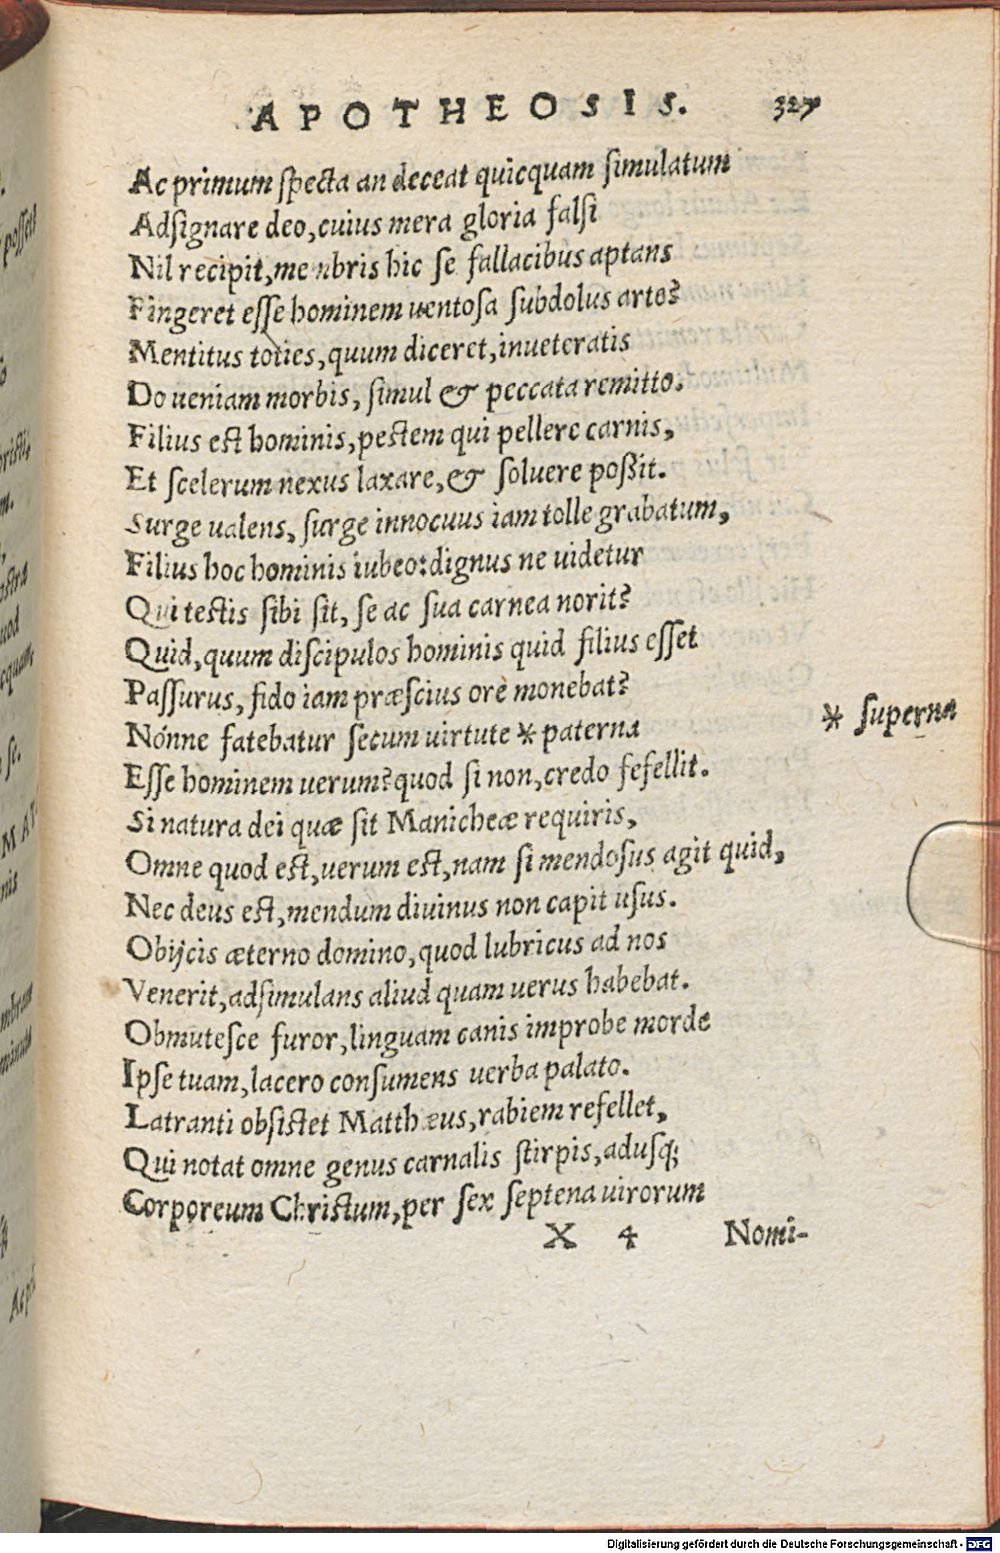 APOTHEOSIS. 327
Ac primum specta an deceat quicquam simulatum
Adsignare deo, cuius mera gloria falsi
Nil recipit, membris hic se fallacibus aptans
Fingeret esse hominem uentosa subdolus arte?
Mentitus toties, quum diceret, inueteratis
Do ueniam morbis, simul & peccata remitto.
Filius est hominis, pestem qui pellere carnis,
Et scelerum nexus laxare, & soluere poßit.
Surge ualens, surge innocuus iam tolle grabatum,
Filius hoc hominis iubeo: dignus ne uidetur
Qui testis sibi sit, se ac sua carnea norit?
Quid, quum discipulos hominis quid filius esset
Passurus, fido iam præscius ore monebat?
Nónne fatebatur secum uirtute * paterna
* superna
Esse hominem uerum? quod si non, credo fefellit.
Si natura dei quæ sit Manicheæ requiris,
Omne quod est, uerum est, nam si mendosus agit quid,
Nec deus est, mendum diuinus non capit usus.
Obijcis æterno domino, quod lubricus ad nos
Venerit, adsimulans aliud quam uerus habebat.
Obmutesce furor, linguam canis improbe morde
Ipse tuam, lacero consumens uerba palato.
Latranti obsistet Matthæus, rabiem refellet,
Qui notat omne genus carnalis stirpis, adusq;
Corporeum Christum, per sex septena uirorum
X 4 Nomi-
Digitalisierung gefördert durch die Deutsche Forschungsgemeinschaft - DFG